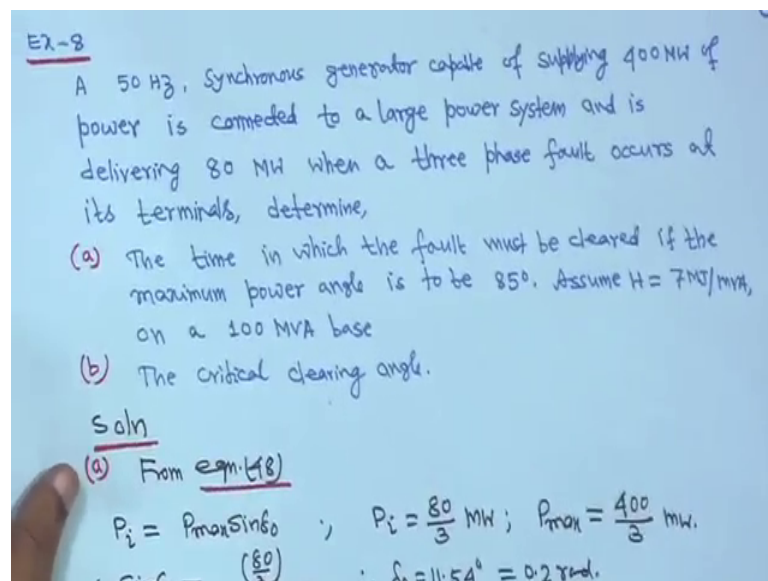 Ex-8
A 50 Hz, Synchronous generator capable of supplying 400 MW of
power is connected to a large power system and is
delivering 80 MW when a three phase fault occurs at
its terminals, determine,
(a) The time in which the fault must be cleared if the
maximum power angle is to be 85°. Assume H = 7 MJ/MVA,
on a 100 MVA base
(b) The critical clearing angle.
Soln
(a) From eqn.(48)
Pi = Pmax Sinδ0 ; Pi = 80/3 MW; Pmax = 400/3 MW.
(80/3) δ0 = 11.54° = 0.2 rad.